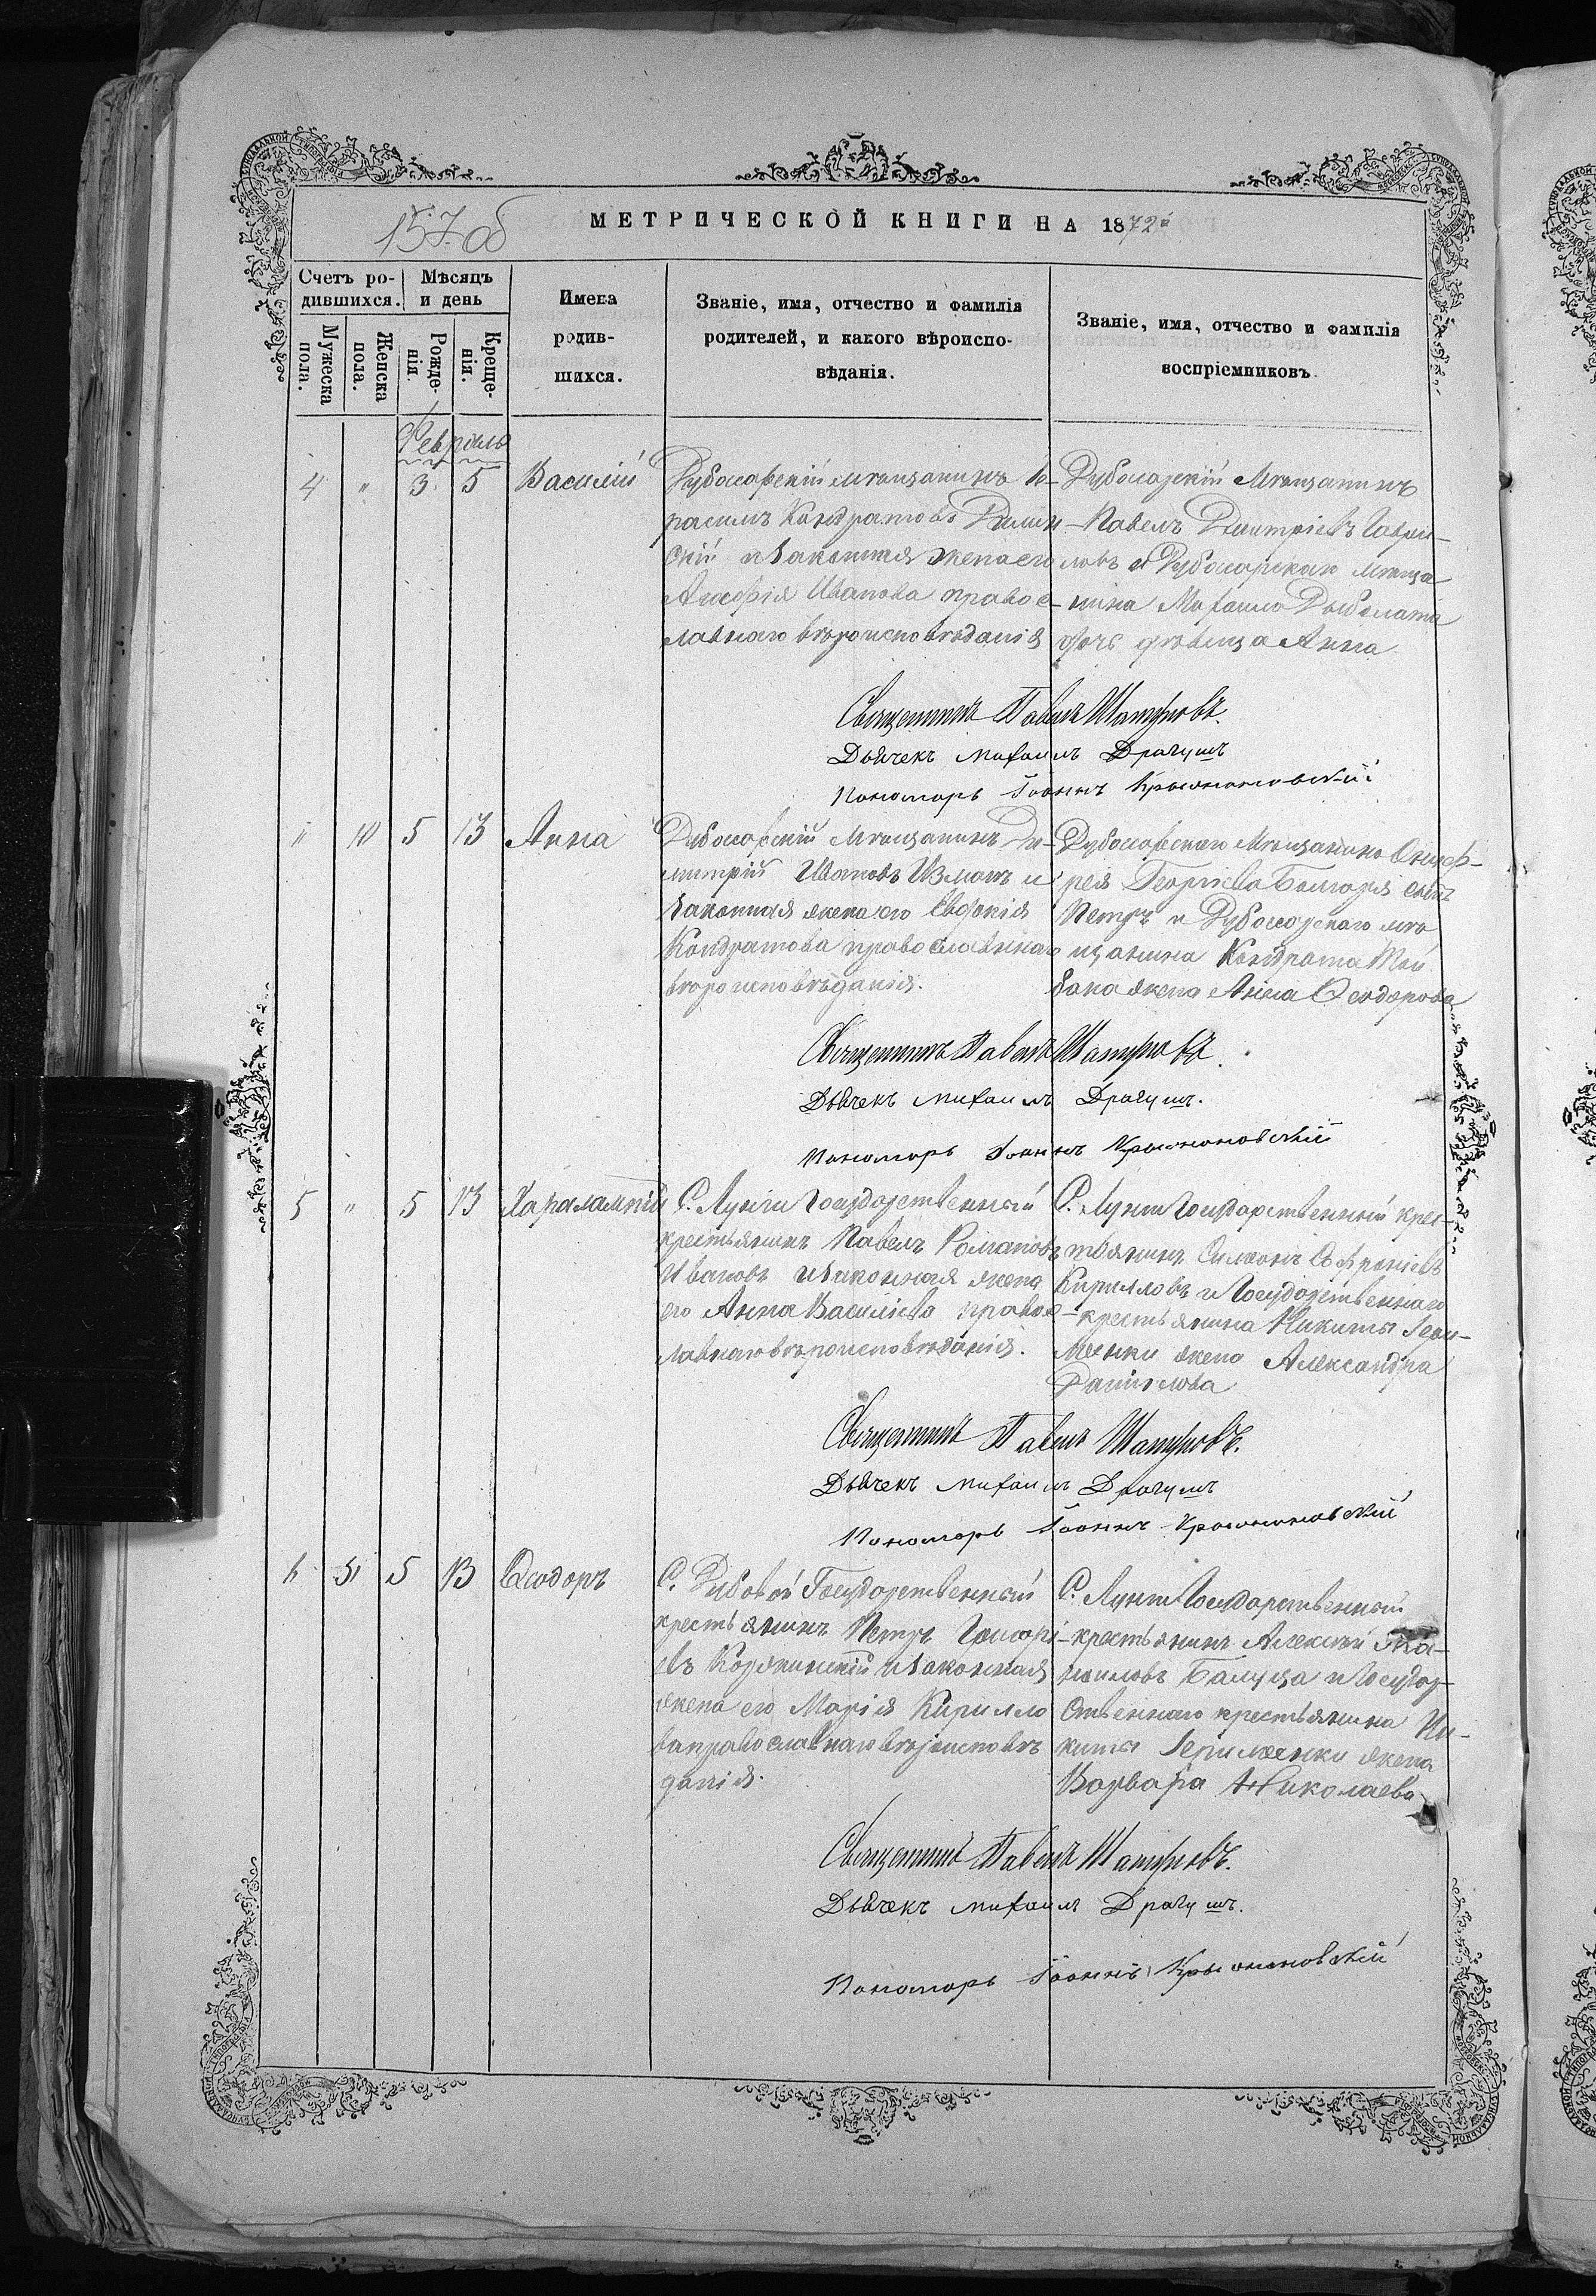 157 об
МЕТРИЧЕСКОЙ КНИГИ НА 1872й
Счетъ ро-
дившихся.
Мѣсяцъ
и день
Мужеска
пола.
Женска
пола.
Рожде-
нія.
Креще-
нія.
Имена
родив-
шихся.
Званіе, имя, отчество и фамилія
родителей, и какого вѣроиспо-
вѣданія.
Званіе, имя, отчество и фамилія
воспріемниковъ.
Февраль
4 " 3 5 Василій
Дубосарскій мѣщанинъ
Кондратовъ
скій и законная жена его
Агафія Иванова правос-
лавнаго вѣроисповѣданія
Дубосарскій мѣщанинъ
Павелъ Дмитріевъ Гаври-
ловъ и Дубосарскаго мѣща
нина Михаила
дочь дѣвица Анна
Священникъ Павелъ
Дьячекъ Михаилъ Драгушъ
Пономарь Іоаннъ Крыжановскій
" 10 5 13 Анна
Дубосарскій мѣщанинъ Ди-
митрій Ивановъ и
законная жена его Евдокія
Кондратова православнаго
вѣроисповѣданія.
Дубосарскаго мѣщанина Онуф-
рея Георгіева Болгаря сынъ
Петръ и Дубосарскаго мѣ
щанина Кондрата
жена Анна Ѳеодорова
Священникъ Павелъ
Дьячекъ Михаилъ Драгушъ.
Пономарь Іоаннъ Крыжановскій
5 " 5 13 Харалампій
С. Лунги Государственный
крестьянинъ Павелъ Романовъ
Ивановъ и законная жена
его Анна Василіева правос-
лавнаго вѣроисповѣданія.
С. Лунги Государственный крес-
тьянинъ Симеонъ Софроніевъ
Кирилловъ и Государственнаго
крестьянина Никиты
жена Александра
Даніилова
Священникъ Павелъ
Дьячекъ Михаилъ Драгушъ
Пономарь Іоаннъ Крыжановскій
6 " 5 13 Ѳеодоръ
С. Дубовой Государственный
крестьянинъ Петръ Григорі-
евъ и законная
жена его Марія Кирилло
ва православнаго вѣроисповѣ
данія.
С. Лунги Государственный
крестьянинъ Алексій
Балуца и Государ-
ственнаго крестьянина Ни-
киты жена
Варвара Николаева
Священникъ Павелъ
Дьячекъ Михаилъ Драгушъ.
Пономарь Іоаннъ Крыжановскій